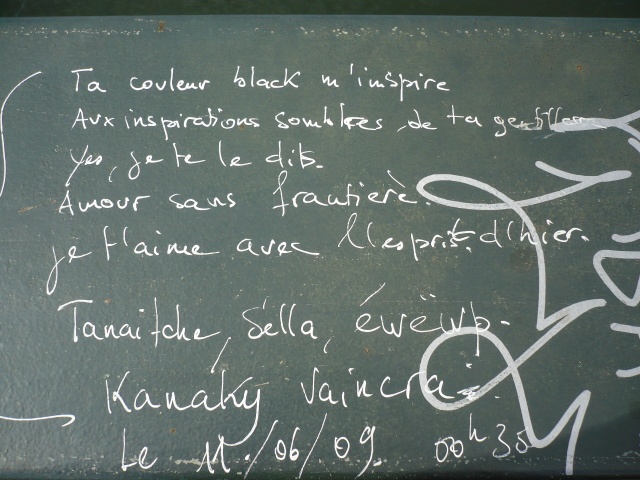 Ta couleur black m'inspire
Aux inspirations sombres de ta
Yes, je te le dits.
Amour sans frantière.
je t'aime avec l'esprit d'hier.
Tanaitche, Sélla, éwëwp.
Kanaky vaincra.
Le 11/06/09 00h35